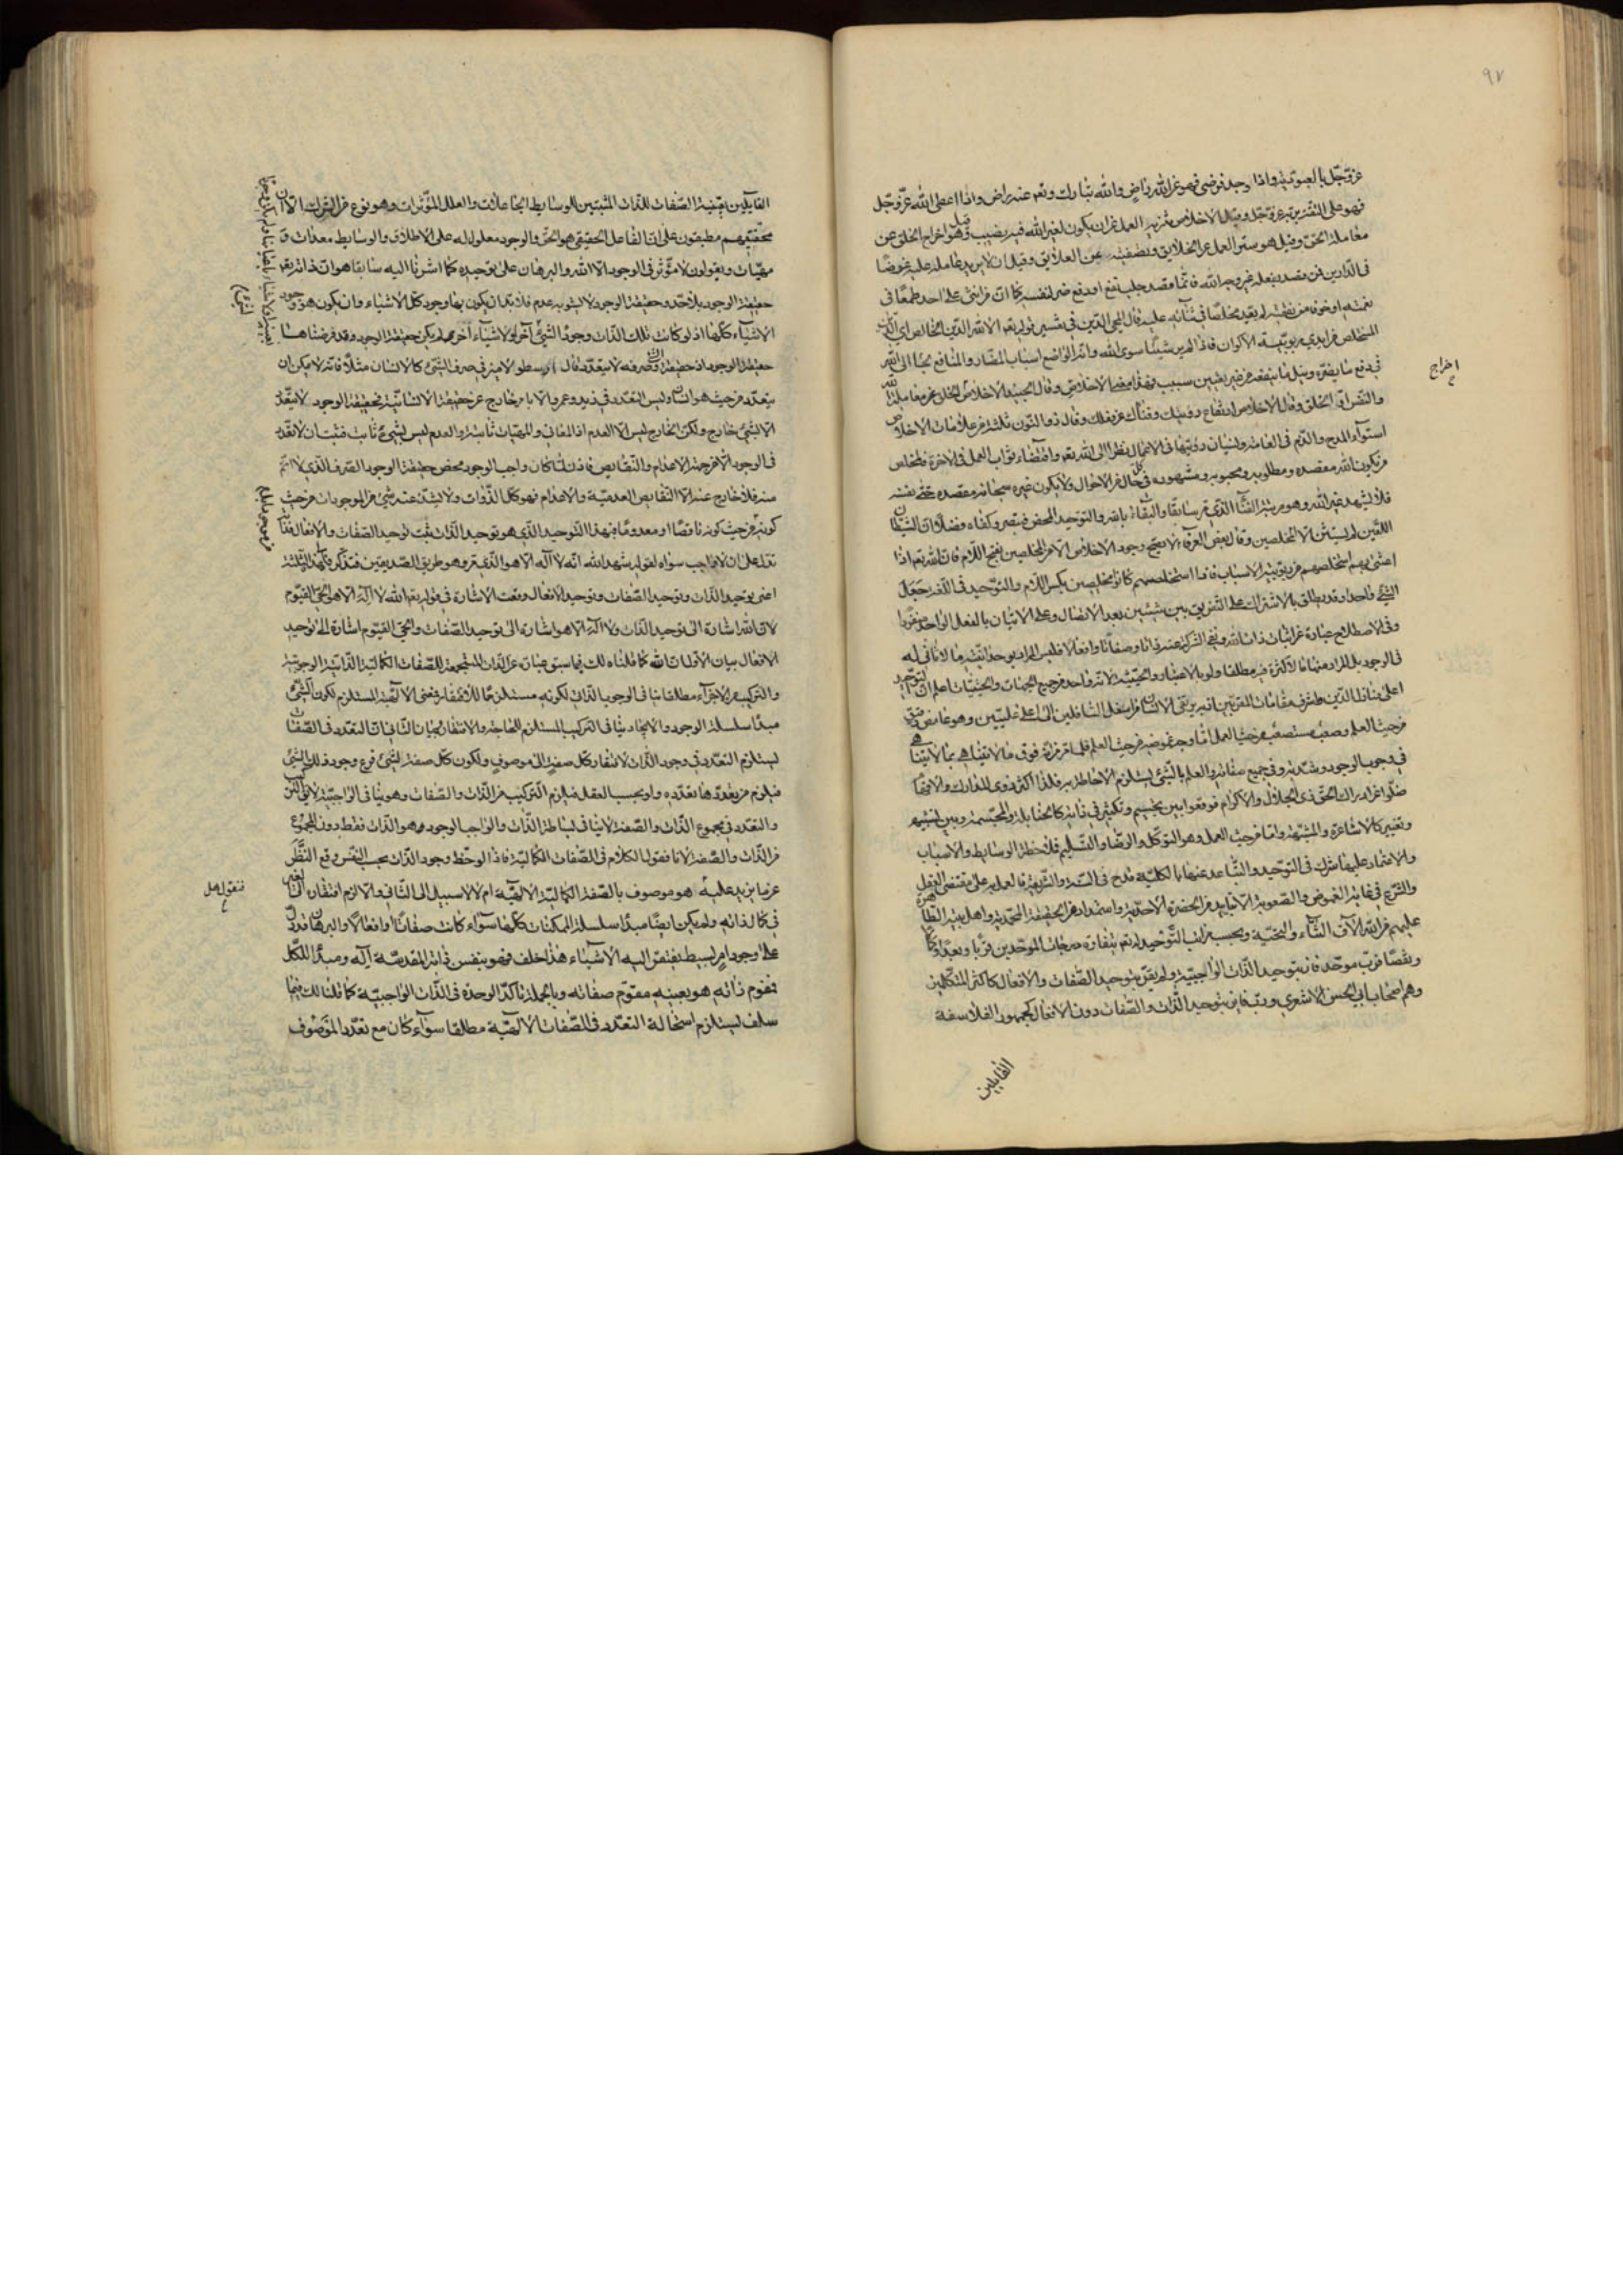 ٩٧
عزّ وجلّ بالعبوديّة واذا وجد فرضى فهو عن الله راض والله تبارك وتعالى عنه راض واذا اعطى الله عزّ وجلّ
فهو على الثقة بربّه عزّ وجلّ وقيل الاخلاص تنزيه العمل عن ان يكون لغير الله فيه نصيب وقيل هو اخراج الخلق عن
معاملة الحق وقيل هو ستر العمل عن الخلايق وتصفيته عن العلايق وقيل ان لا يريد عامله عليه عوضا
فى الدّارين فمن قصد بفعله غير وجه الله فانّما قصد جلب نفع او دفع ضر لنفسه كما ان من اثنى على احد طمعًا فى
نعمته او خوفا من نقمته لم يعد مخلصًا فى ثنائه عليه قال محيى الدّين فى تفسير قوله تعالى الا لله الدّين الخالص اى الّذى
استخلص من ايدى ربوبيّة الاكوان فاذا لم ير شيئًا سوى الله وانه الواضع اسباب المضار والمنافع لجأ الى الله
فى دفع ما يضرّه ونيل ما ينفعه من غير تعيين سبب فهذا معنى الاخلاص وقال الجنيد الاخلاص اخراج الخلق عن معاملة الله
اخراج
والنفس الى الخلق وقال الاخلاص ارتفاع رؤيتك وفناؤك عن فعلك وقال ذو النّون ثلثة من علامات الاخلاص
استواء المدح والذّم فى العامّة ونسيان رؤيتها فى الاعمال نظرا الى الله تعالى واقتضاء ثواب العمل فى الاخرة فالمخلص
من يكون الله مقصده ومطلوبه ومحبوبه ومشهوده فى كلّ حال من الاحوال ولا يكون غيره سبحانه مقصده حتّى نفسه
فلا يشهد غير الله وهو مرتبة الفناء الّذى مرّ سابقا والبقاء بالله والتوحيد المحض فتبصر وكفاه فضلًا ان الشيطان
اللعين لم يستثن الّا المخلصين وقال بعض العرفاء لا يصحّ وجود الاخلاص الّا من المخلصين بفتح اللّام فان الله تعالى اذا
اعتنى بهم استخلصهم من ربوبيّة الاسباب فاذا استخلصهم كانوا مخلصين بكسر اللّام والتوحيد فى اللّغة جعل
الشّئ واحدا وقد يطلق بالاشتراك على التفريق بين شيئين بعد الاتصال وعلى الاتيان بالفعل الواحد منفردا
وفى الاصطلاح عبارة عن اثبات ذات الله ونفى الشرك عنه ذاتا وصفاتا وافعالا فليس المراد بوحدانيّته ما لا ثانى له
فى الوجود بل المراد منها ما لا كثرة فيه مطلقا ولو بالاعتبار والحيثيّة لانّه واحد من جميع الجهات والحيثيّات اعلم ان التوحيد
اعلى منازل الدّين واشرف مقامات المقرّبين اذ به يرتقى الانسان من اسفل السّافلين الى اعلى علّيّين وهو غامض دقيق
من حيث العلم وصعب مستصعب من حيث العمل امّا وجه غموضه من حيث العلم فلما مرّ مرّة فوق ما لا يتناهى بما لا يتناهى
فى وجوب الوجود وشدّته وفى جميع صفاته والعلم بالشّئ يستلزم الاحاطة به فلذا اكثر ذوى المدارك والافهام
ضلّوا عن ادراك الحقّ ذى الجلال والاكرام فوقعوا بين تجسيم وتكثير فى ذاته كالحنابلة والمجسّمة وبين تشبيه
وتغيير كالاشاعرة والمشبّهة وامّا من حيث العمل وهو التوكّل والرضا والتّسليم فلانّ ملاحظة الوسايط والاسباب
والاعتماد عليها شرك فى التوحيد والتّباعد عنها بالكليّة قدح فى السّنة والشّريعة فالعمل به على مقتضى العقل
والشّرع فى غاية الغموض والصّعوبة الّا بتاييد من الحضرة الاحديّة واستمداد من الحقيقة المحمّدية واهل بيته الطّاهرة
عليهم من الله آلاف الثّناء والتّحيّة وبحسب مراتب التّوحيد له تعالى يتفاوت درجات الموحّدين قربًا وبعدًا وكمالًا
ونقصًا فربّ موحّد فاز بتوحيد الذّات الواجبيّة ولم يفز بتوحيد الصّفات والافعال كاكثر المتكلّمين
وهم اصحاب ابى الحسن الاشعرى وربّ فايز بتوحيد الذّات والصّفات دون الافعال كجمهور الفلاسفة
القايلين
القايلين بعينيّة الصّفات للذّات المثبتين الوسايط الجاعلات والعلل المؤثّرات وهو نوع من الشرك الّا ان
محقّقيهم مطبقون على ان الفاعل الحقيقى هو الحقّ والوجود معلول له على الاطلاق والوسايط معدّات و
مهيّئات ويقولون لا مؤثّر فى الوجود الّا الله والبرهان على توحيده كما اشرنا اليه سابقا هو ان ذاته تعالى
حقيقة الوجود بلا حدّ وحقيقة الوجود لا يشوبه عدم فلا بدّ ان يكون بها وجود كلّ الاشياء وان يكون هو وجود
الاشياء كلّها اذ لو كانت تلك الذّات وجودًا لشئ آخر او لاشياء أخر لم يكن حقيقة الوجود وقد فرضناها
حقيقة الوجود اذ حقيقة الشّئ وصرفه لا يتعدّد قال ارسطو الامر فى صرف الشّئ كالانسان مثلًا فانّه لا يمكن ان
يتعدّد من حيث هو انسان وليس التعدّد فى زيد وعمرو الّا بامر خارج عن حقيقة الانسانيّة فحقيقة الوجود لا يتعدّد
الّا بشئ خارج ولكن الخارج ليس الّا العدم اذ المعانى والمهيّات ثابتة والعدم ليس بشئ ثابت فثبت ان لا تعدّد
فى الوجود الّا من جهة الاعدام والنّقايص فاذن لمّا كان واجب الوجود محض حقيقة الوجود الصّرف الّذى لا اتمّ
منه فلا خارج عنه الّا النّقايص العدميّة والاعدام فهو كلّ الذّوات ولا يشذّ عنه شئ من الموجودات من حيث
كونه من حيث كونه ناقصًا او معدومًا فبهذا التّوحيد الّذى هو توحيد الذّات يثبت توحيد الصّفات والافعال
تدلّ على ان لا واجب سواه لقوله شهد الله انّه لا اله الّا هو الّذى مرّ وهو طريق الصّديقين فتذكّر فهذه الثّلثة
اعنى توحيد الذّات وتوحيد الصّفات وتوحيد الافعال وقعت الاشارة فى قوله تعالى الله لا اله الّا هو الحىّ القيّوم
لان الله اشارة الى توحيد الذّات ولا اله الّا هو اشارة الى توحيد الصّفات والحىّ القيّوم اشارة الى توحيد
الافعال بيان الاوّل ان الله كما قلناه لك فيما سبق عبارة عن الذّات المستجمعة للصّفات الكماليّة الذّاتيّة الوجوبيّة
والتركيب من الاجزاء مطلقا ينافى الوجوب الذّاتى لكونه مستلزمًا للافتقار فمعنى الالهيّة المستلزم لكون الشّئ
مبدأ سلسلة الوجود والايجاد ينافى التركيب المستلزم للحاجة والافتقار بيان الثّانى ان التعدّد فى الصّفات
يستلزم التعدّد فى وجود الذّات لافتقار كلّ صفة الى موصوف ولكون كلّ صفة لشئ فرع وجود ذلك الشّئ
فيلزم من تعدّدها تعدّده ولو بحسب العقل فيلزم التّركيب من الذّات والصّفات وهو ينافى الواجبيّة
والتعدّد فى مجموع الذّات والصّفة لا ينافى بساطة الذّات والواجب الوجود هو الذّات فقط دون المجموع
من الذّات والصّفة لانا نقول الكلام فى الصّفات الكماليّة فاذا لوحظ وجود الذّات بحسب النّفس وقع النّظر
عن ما يزيد عليه هو موصوف بالصّفة الكماليّة الالهيّة ام لا لا سبيل الى الثّانى والّا لزم افتقاره الى الغير
فنقول هل
فى كمال ذاته ولم يكن ايضا مبدأ سلسلة الممكنات كلّها سوآء كانت صفاتًا او افعالًا والبرهان قد دلّ
على وجود امر بسيط تفتقر اليه الاشياء هذا خلف فهو بنفس ذاته المقدسّة اله ومبدأ للكلّ
فقوم ذاته هو بعينه مقوّم صفاته وبالجملة تاكّد الوحدة فى الذّات الواجبيّة كما قلنا لك فيما
سلف يستلزم استحالة التعدّد فى الصّفات الالهيّة مطلقا سوآء كان مع تعدّد الموصوف